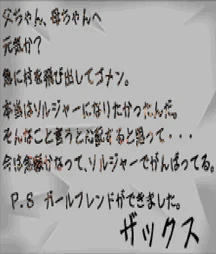 父ちゃん、母ちゃんへ
元気か?
急に村を飛び出してゴメン。
本当はソルジャーになりたかったんだ。
そんなこと言うと心配すると思って・・・
今は念願かなって、ソルジャーでがんばってる。
P.S ガールフレンドができました。
ザックス